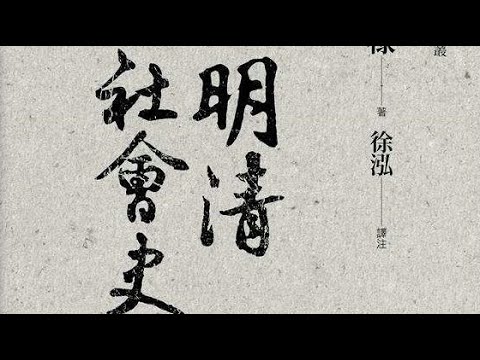 叢
著 徐泓 譯注
明清
社會史